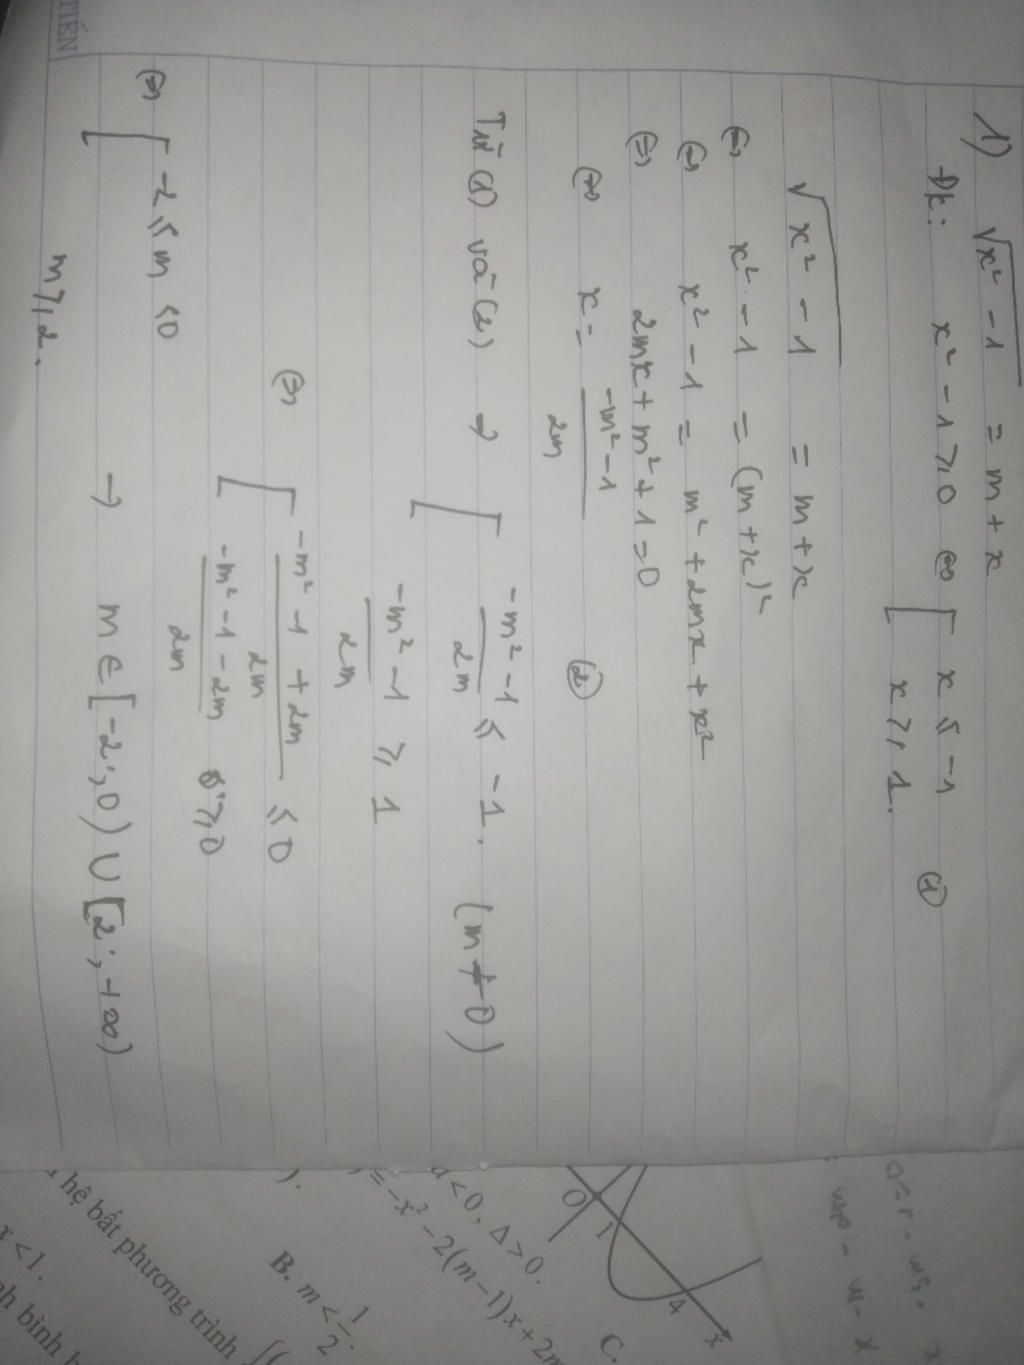 TIẾN
1) √x² - 1 = m + x
Đk: x² - 1 ≥ 0 ⇔ [ x ≤ -1
x ≥ 1. (1)
√x² - 1 = m + x
⇔ x² - 1 = (m + x)²
⇔ x² - 1 = m² + 2mx + x²
⇔ 2mx + m² + 1 = 0
⇔ x = -m² - 1 / 2m (2)
Từ (1) và (2) → [ -m² - 1 / 2m ≤ -1. (m ≠ 0)
-m² - 1 / 2m ≥ 1
⇔ [ -m² - 1 + 2m / 2m ≤ 0
-m² - 1 - 2m / 2m ≥ 0
⇔ [ -2 ≤ m < 0
m ≥ 2. → m ∈ [-2; 0) ∪ [2; +∞)
O 1 4 x
a < 0, Δ > 0.
C.
= -x² - 2(m-1)x + 2m
).
B. m < 1/2.
hệ bất phương trình
x < 1.
bình